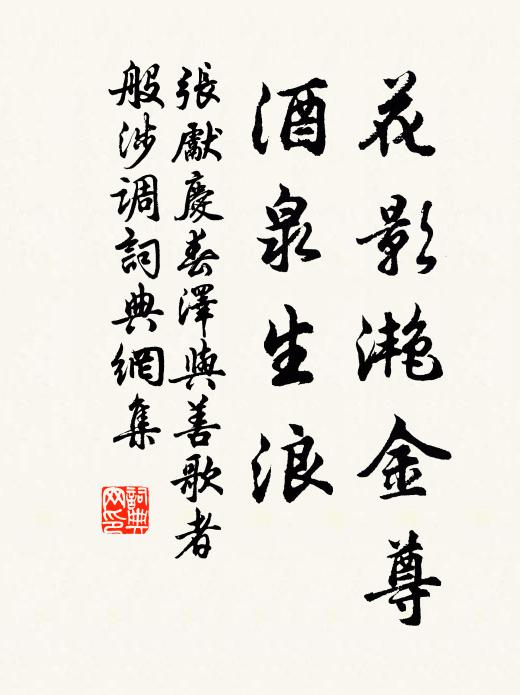 花影滟金尊
酒泉生浪
張獻慶春澤與善歌者
般涉调詞典網集
詞典网印